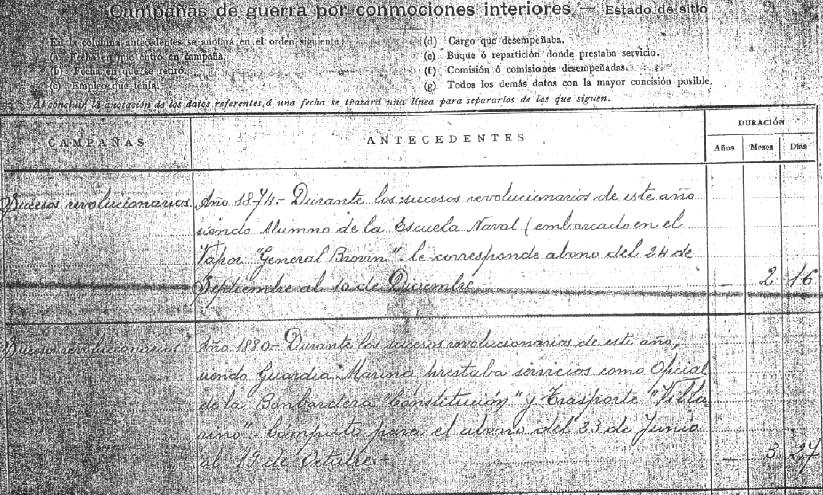 Campañas de guerra por conmociones interiores — Estado de sitio
En la columna antecedentes se anotará en el orden siguiente:
(d) Cargo que desempeñaba.
Fecha en que entró en campaña.
(e) Buque ó repartición donde prestaba servicio.
(b) Fecha en que se retiró.
(f) Comisión ó comisiones desempeñadas.
(c) Empleo que tenía.
(g) Todos los demás datos con la mayor concisión posible.
Al concluir la anotación de los datos referentes á una fecha se trazará una línea para separarlos de los que siguen.
CAMPAÑAS
ANTECEDENTES
DURACIÓN
Años Meses Días
Sucesos revolucionarios
Año 1874.- Durante los sucesos revolucionarios de este año
siendo Alumno de la Escuela Naval (embarcado en el
Vapor "General Brown". le corresponde abono del 24 de
Septiembre al 10 de Diciembre
— 2 16
Sucesos revolucionarios
Año 1880- Durante los sucesos revolucionarios de este año,
siendo Guardia Marina prestaba servicios como Oficial
de la Bombardera "Constitución" y Trasporte "Villa
rino". Computa para el abono del 23 de Junio
al 19 de Octubre.
— 3 27